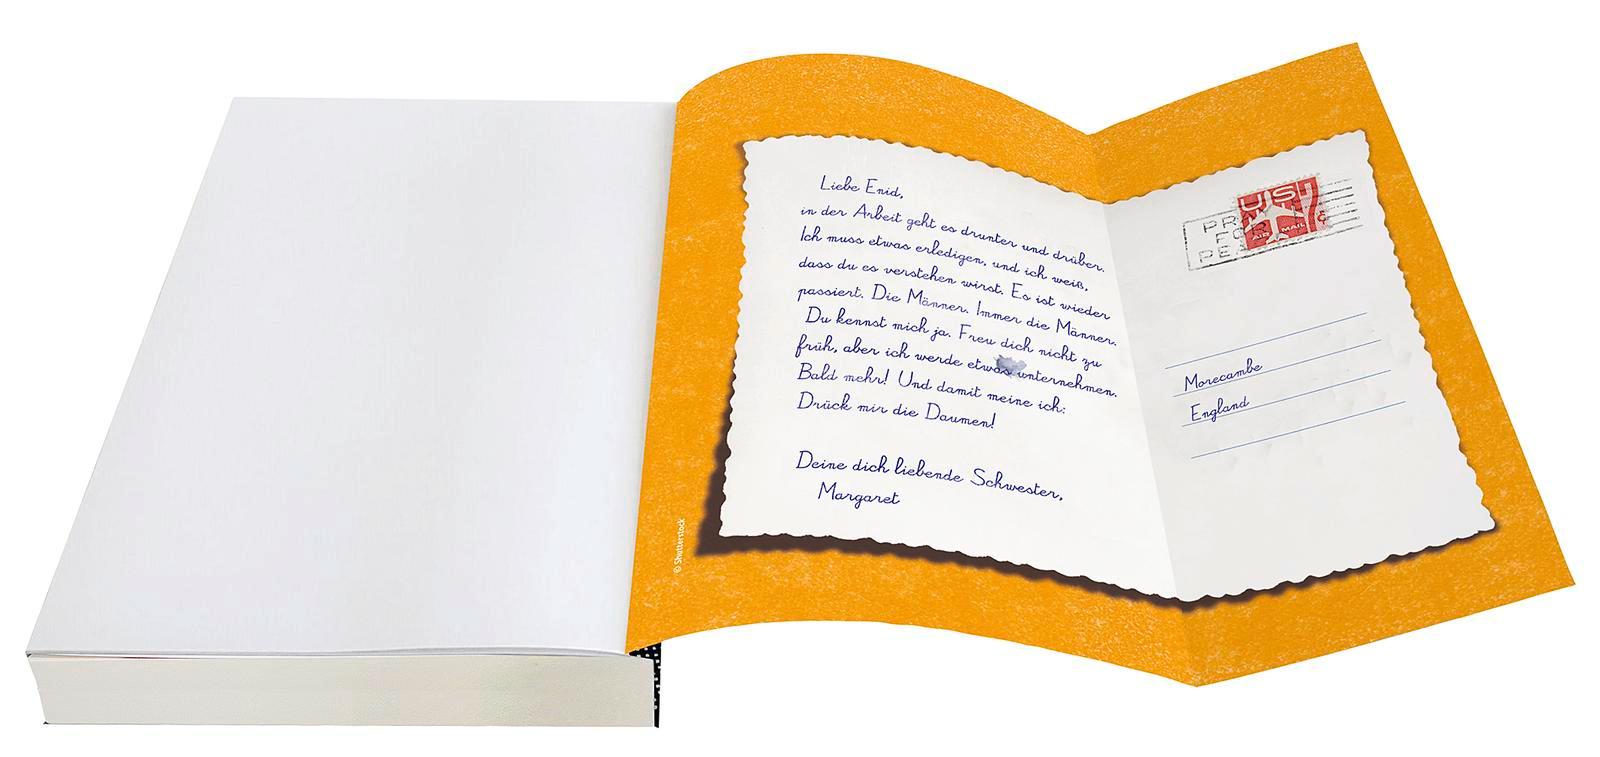 Liebe Enid,
in der Arbeit geht es drunter und drüber.
Ich muss etwas erledigen, und ich weiß,
dass du es verstehen wirst. Es ist wieder
passiert. Die Männer. Immer die Männer.
Du kennst mich ja. Freu dich nicht zu
früh, aber ich werde etwas unternehmen.
Bald mehr! Und damit meine ich:
Drück mir die Daumen!
Deine dich liebende Schwester,
Margaret
© Shutterstock
US
7¢
AIR MAIL
PRAY
FOR
PEACE
Morecambe
England